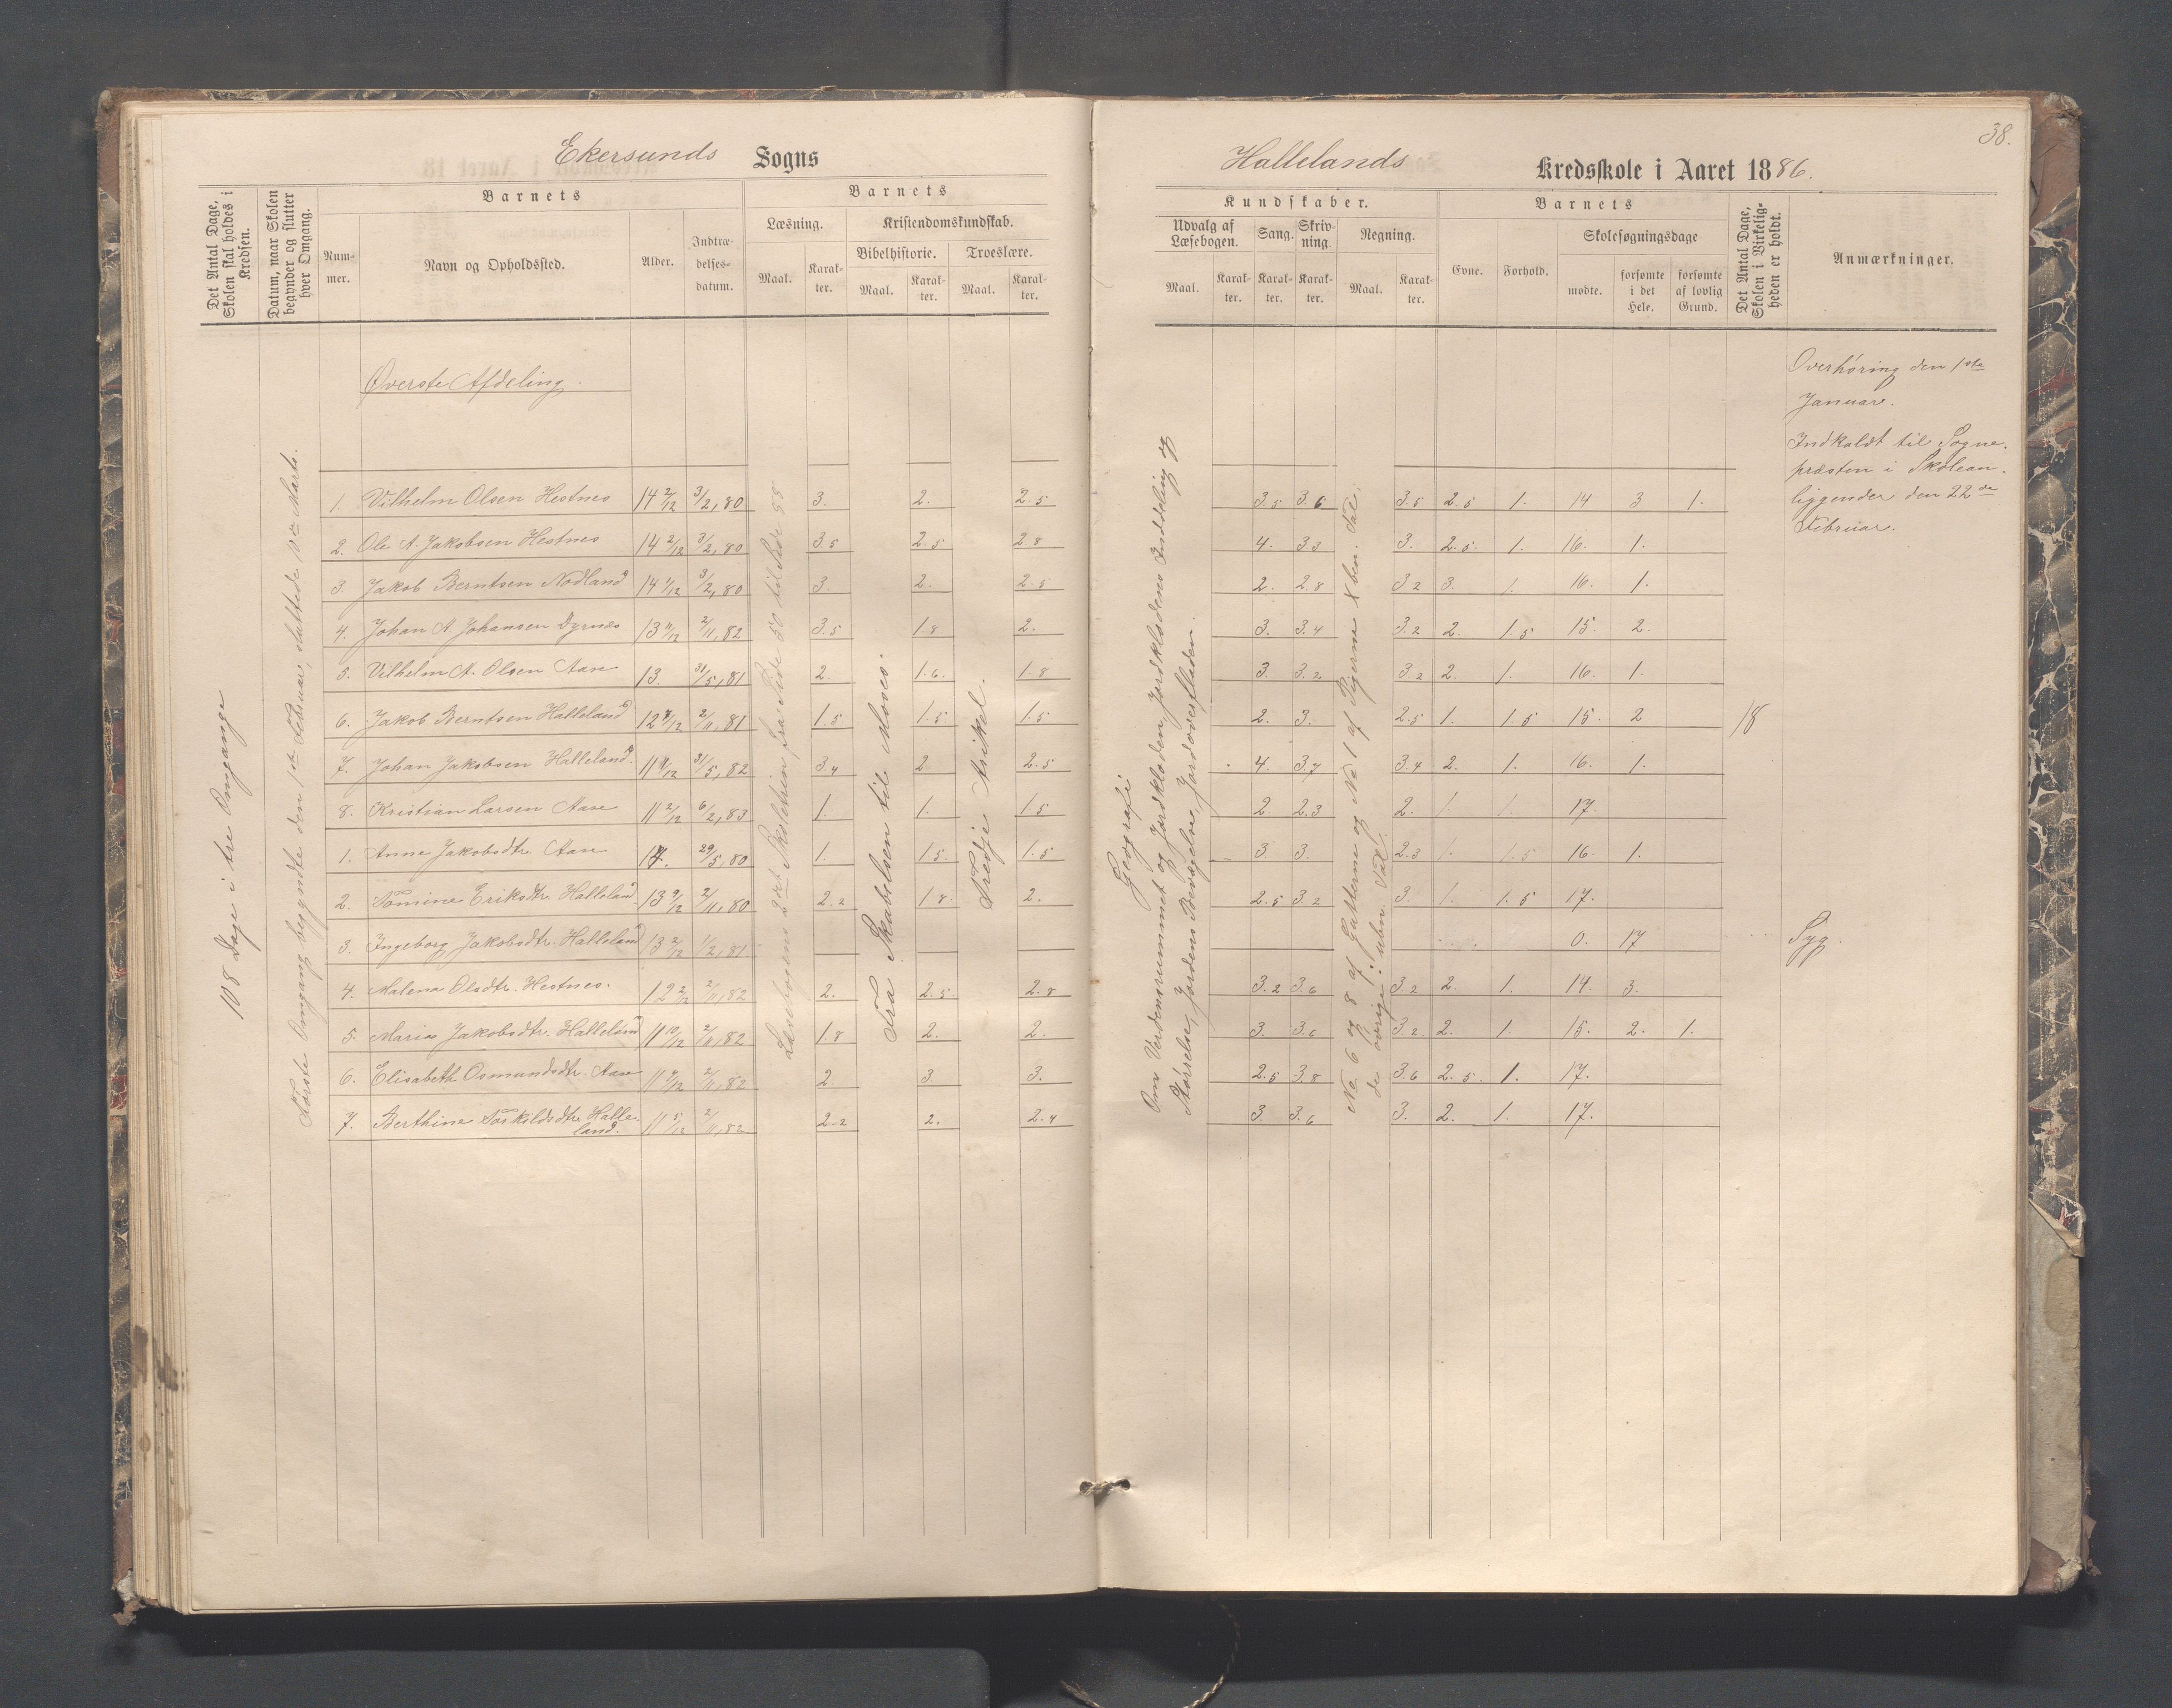 38.
Ekersunds Sogns
Hallelands Kredsskole i Aaret 1886.
Det Antal Dage, Skolen skal holdes i Kredsen.
Datum, naar Skolen begynder og slutter hver Omgang.
Barnets
Nummer.
Navn og Opholdssted.
Alder.
Indtrædelsesdatum.
Barnets
Læsning.
Maal.
Karakter.
Kristendomskundskab.
Bibelhistorie.
Maal.
Karakter.
Troeslære.
Maal.
Karakter.
Kundskaber.
Udvalg af Læsebogen.
Maal.
Karakter.
Sang.
Karakter.
Skrivning.
Karakter.
Regning.
Maal.
Karakter.
Barnets
Evne.
Forhold.
Skolesøgningsdage
mødte.
forsømte i det Hele.
forsømte af lovlig Grund.
Det Antal Dage, Skolen i Virkeligheden er holdt.
Anmærkninger.
108 Dage i tre Omgange
Første Omgang begyndte den 1ste Februar, sluttede Marts.
Øverste Afdeling.
1. Vilhelm Olsen Hestnes 14 2/12 3/2, 80 3. 2. 2.5 3.5 3.6 3.5 2.5 1. 14 3 1.
2. Ole A. Jakobsen Hestnes 14 2/12 3/2, 80 3.5 2.5 2.8 4. 3.3 3. 2.5. 1. 16. 1.
3. Jakob Berntsen Nodland 14 1/12 3/2, 80 3. 2. 2.5 2. 2.8 3.2 3. 1. 16. 1.
4. Johan A Johansen Dyrnæs 13 11/12 2/11, 82 3.5 1.8 2. 3. 3.4 3.2 2. 1.5 15. 2.
5. Vilhelm A. Olsen Aase 13 31/5, 81 2. 1.6. 1.8 3 3.2 3.2 2. 1. 16. 1.
6. Jakob Berntsen Halleland 12 7/12 2/11, 81 1.5 1.5 1.5 2. 3. 2.5 1. 1.5 15. 2
7. Johan Jakobsen Halleland. 11 9/12 31/5, 82 3.4 2 2.5 4. 3.7 3.4 2. 1. 16. 1.
8. Kristian Larsen Aase 11 2/12 6/2, 83 1. 1. 1.5 2 2.3 2. 1. 1. 17.
1. Anna Jakobsdtr. Aase 14. 29/5, 80 1. 1.5. 1.5 3. 3. 2.3 1. 1.5 16. 1.
2. Tomine Eriksdtr. Halleland 13 9/12 2/11, 80 2.2 1.8. 2. 2.5 3.2 3. 1. 1.5 17.
3. Ingeborg Jakobsdtr. Halleland 13 2/12 1/2, 81. 0. 17 Syg.
4. Malena Olsdtr. Hestnes. 12 2/12 2/11, 82 2. 2.5. 2.8 3.2 3.6 3.2 2. 1. 14. 3.
5. Maria Jakobsdtr. Halleland 11 10/12 2/11, 82 1.8 2. 2. 3. 3.6 3.2 2. 1. 15. 2. 1.
6. Elisabeth Osmundsdtr. Aase 11 9/12 2/11, 82 2. 3. 3. 2.5 3.8 3.6 2.5. 1. 17.
7. Berthine Torkildsdtr. Halle-
land. 11 5/12 2/11, 82 2.2 2. 2.4 3. 3.6 3. 2. 1. 17.
Læsebogens 2det Skoletrin, fra Side 50 til Side 58
Fra Skabelsen til Moses.
Tredje Artikel.
Geografi
Om Verdensrummet og Jordkloden, Jordklodens Inddeling og
Størrelse, Jordens Bevægelse, Jordoverfladen.
No. 6 og 8 af Gutterne og No 1 af Pigerne i ben. Tal,
de øvrige i uben. Tal.
18
Overhøring den 1ste
Januar.
Indkaldt til Sogne-
præsten i Skolean-
liggender den 22de
Februar.